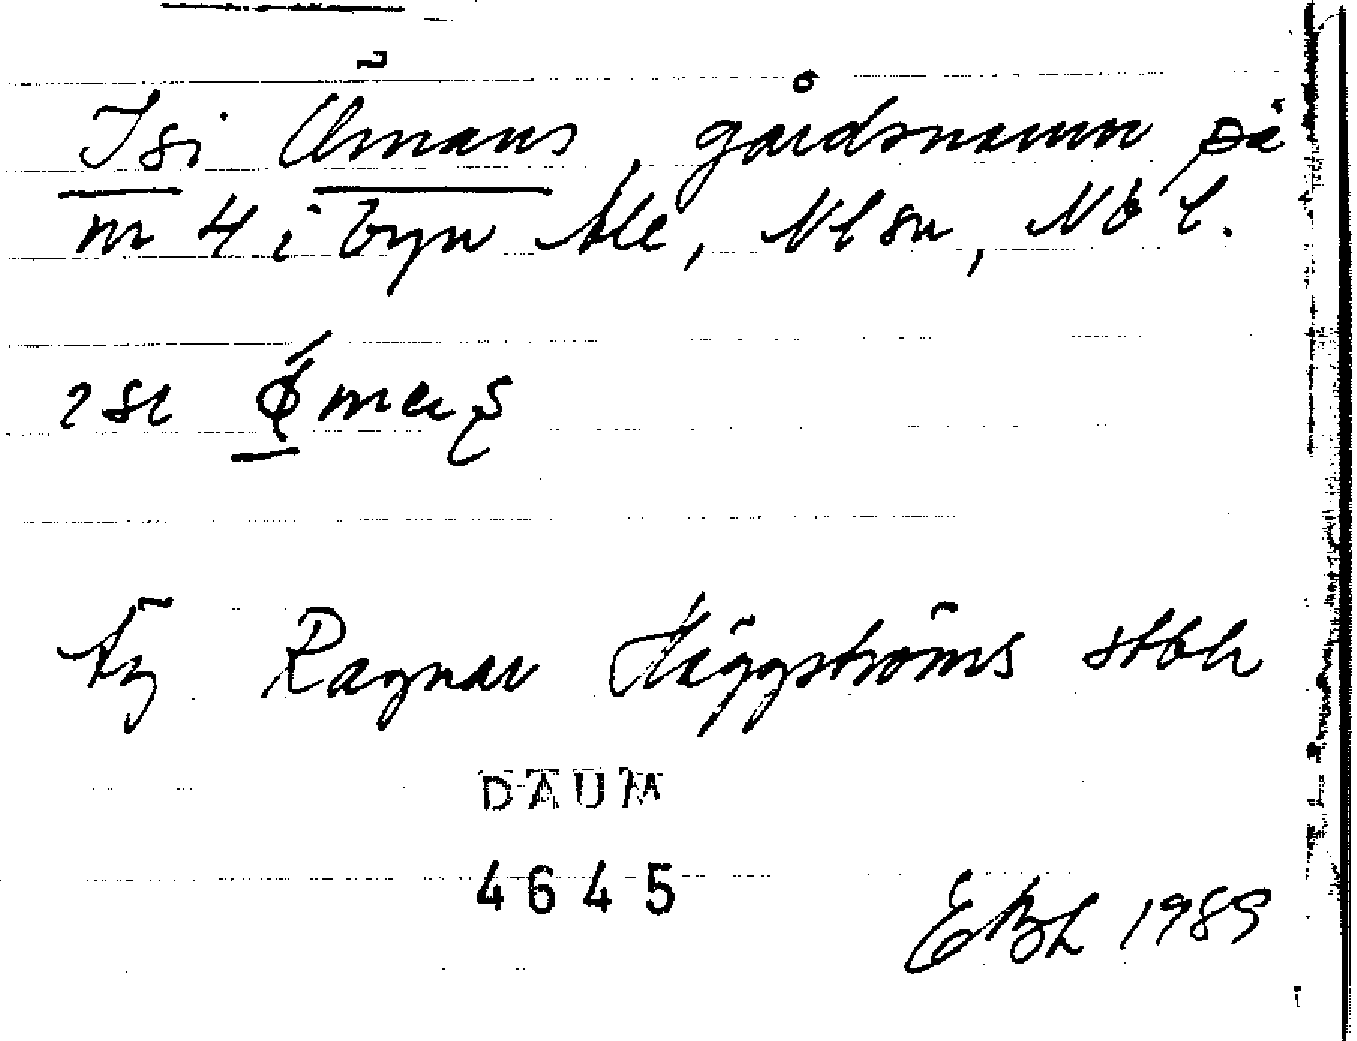 Isi Ömans, gårdsnamn på
nr 4 i byn Ale, Nlsn, Nb l.
ɪsɪ
Ragnar Häggströms stbh
DAUM
4645
EBL 1989